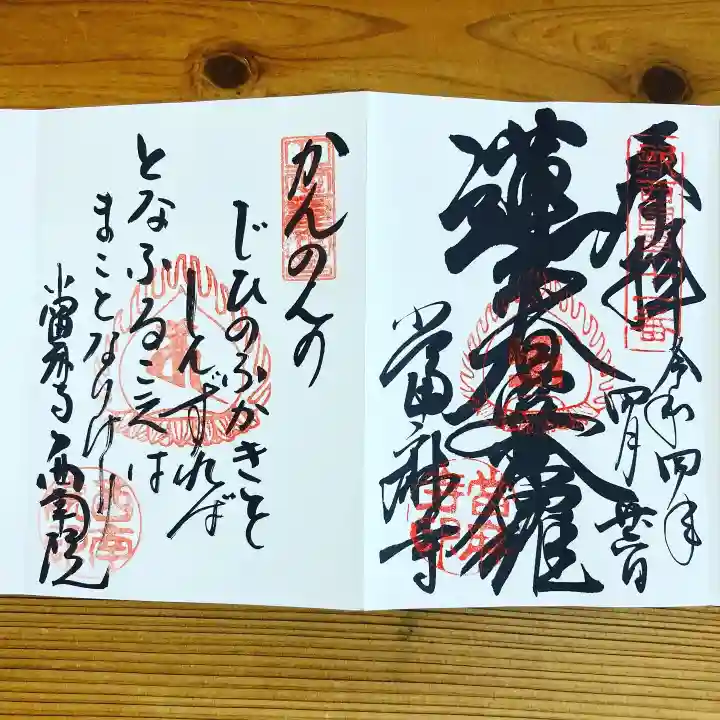 奉拝
令和四年
四月
廿六日
曼荼羅
當麻寺
當麻寺印
かんのんの
じひのふかきを
しんずれば
となふるこえは
まことなりけり
當麻寺 西南院